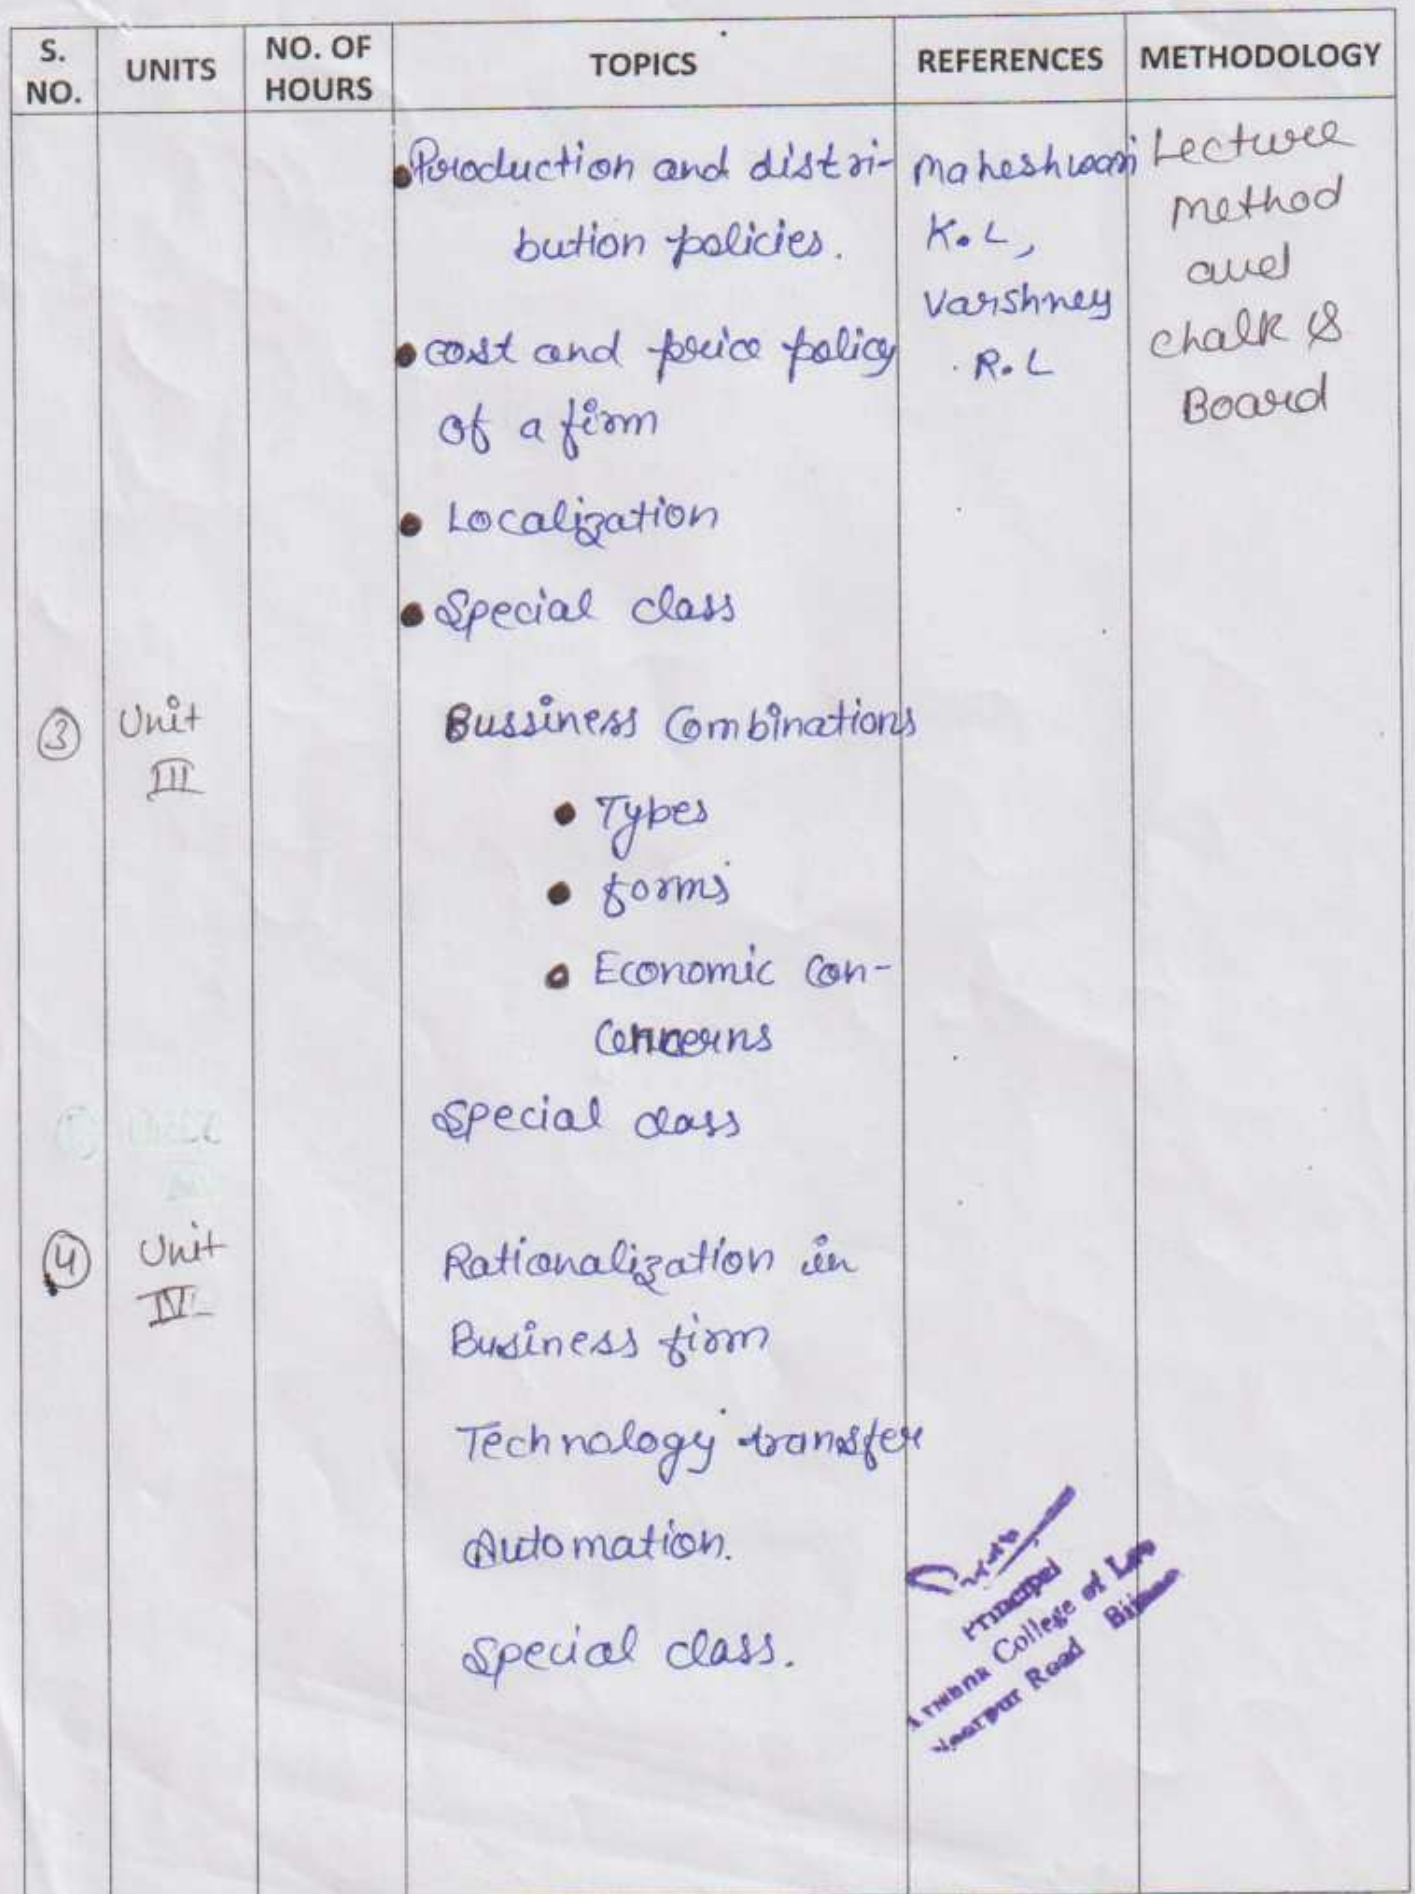 S. NO. UNITS NO. OF HOURS TOPICS REFERENCES METHODOLOGY
• Production and distri-
bution policies.
• cost and price policy
of a firm
• Localization
• Special class
Maheshwari
K.L,
Varshney
R.L
Lecture
Method
and
chalk &
Board
3 Unit
III
Bussiness Combinations
• Types
• forms
• Economic Con-
Cerns
Special class
4 Unit
IV
Rationalization in
Business firm
Technology transfer
Automation.
Special class.
Principal
College of Law
Road